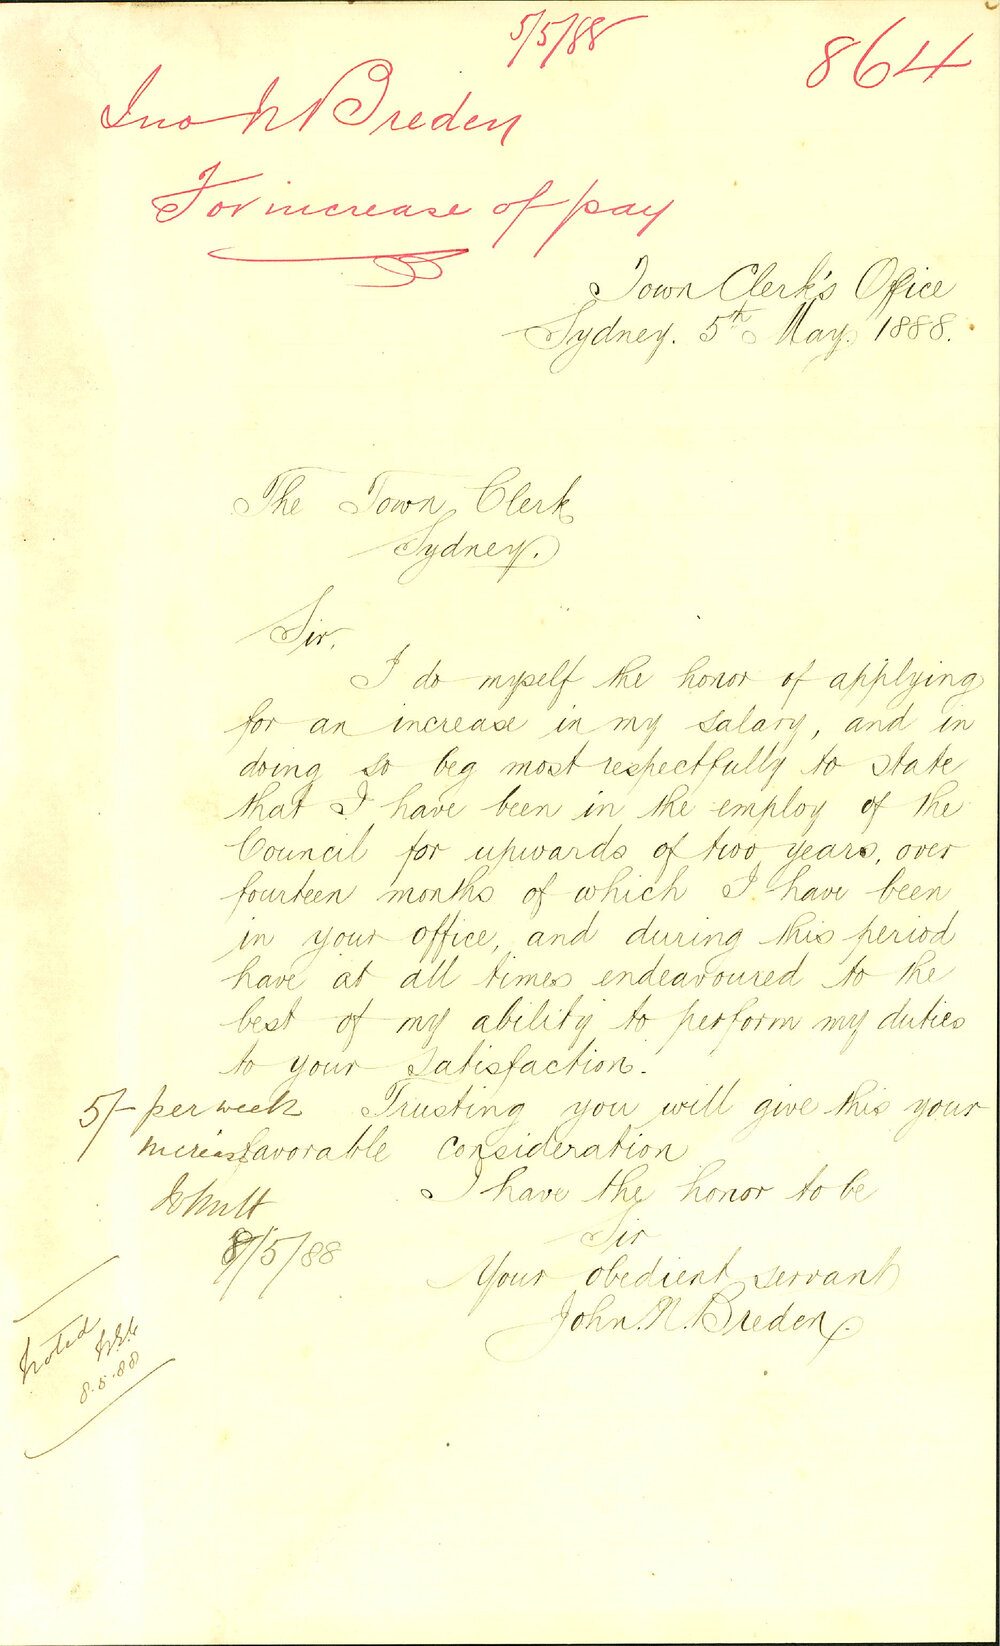 5/5/88
864
Jno N Breden
For increase of pay
Town Clerk's Office
Sydney. 5th May. 1888.
The Town Clerk
Sydney.
Sir,
I do myself the honor of applying
for an increase in my salary, and in
doing so beg most respectfully to state
that I have been in the employ of the
Council for upwards of two years, over
fourteen months of which I have been
in your office, and during this period
have at all times endeavoured to the
best of my ability to perform my duties
to your satisfaction.
Trusting you will give this your
favorable consideration
I have the honor to be
Sir
Your obedient servant
John. N. Breden.
5/- per week
increase
8/5/88
Noted
8.5.88